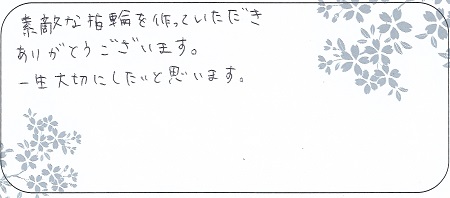 素敵な指輪を作っていただき
ありがとうございます。
一生大切にしたいと思います。